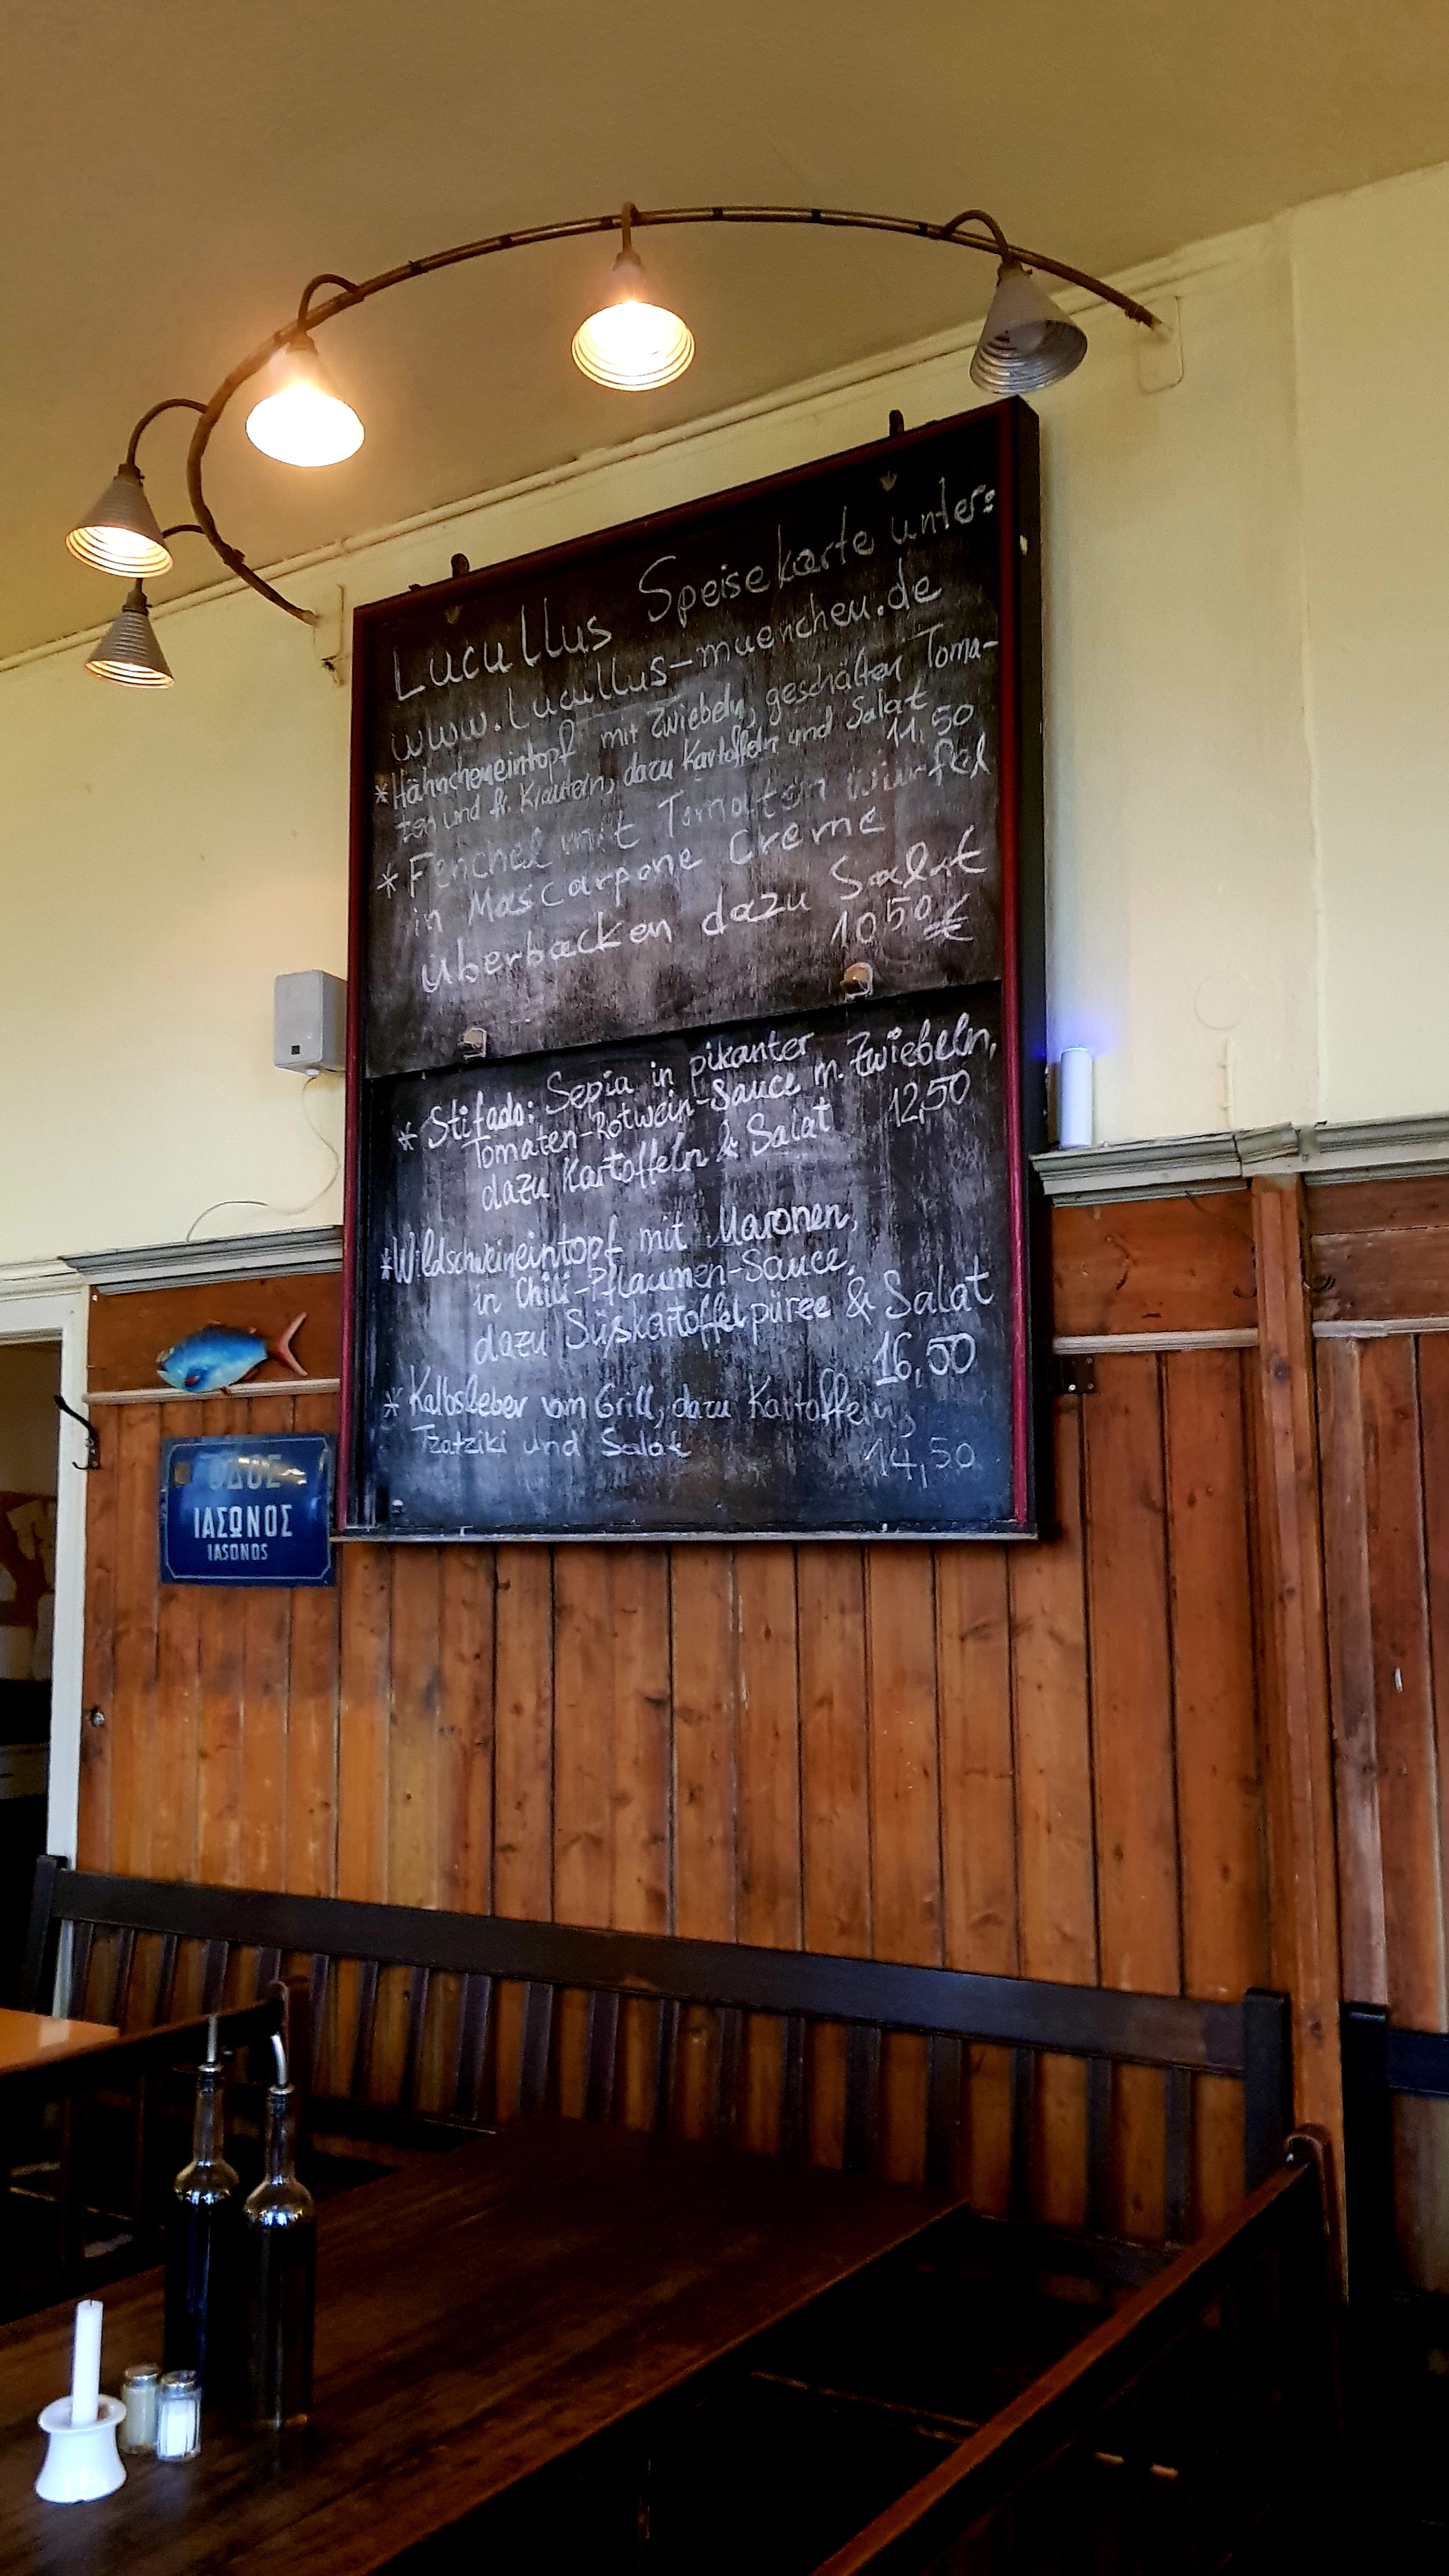 Lucullus Speisekarte unter:
www.Lucullus-muenchen.de
* Hähncheneintopf mit Zwiebeln, geschälten Toma-
ten und fr. Kräutern, dazu Kartoffeln und Salat
11,50
* Fenchel mit Tomaten würfel
in Mascarpone Creme
überbacken dazu Salat
10,50 €
* Stifado: Sepia in pikanter
Tomaten-Rotwein-Sauce m. Zwiebeln,
dazu Kartoffeln & Salat 12,50
* Wildschweineintopf mit Maronen,
in Chili-Pflaumen-Sauce,
dazu Süßkartoffelpüree & Salat
16,50
* Kalbsleber vom Grill, dazu Kartoffeln,
Tzatziki und Salat 14,50
ΟΔΟΣ
ΙΑΣΩΝΟΣ
IASONOS